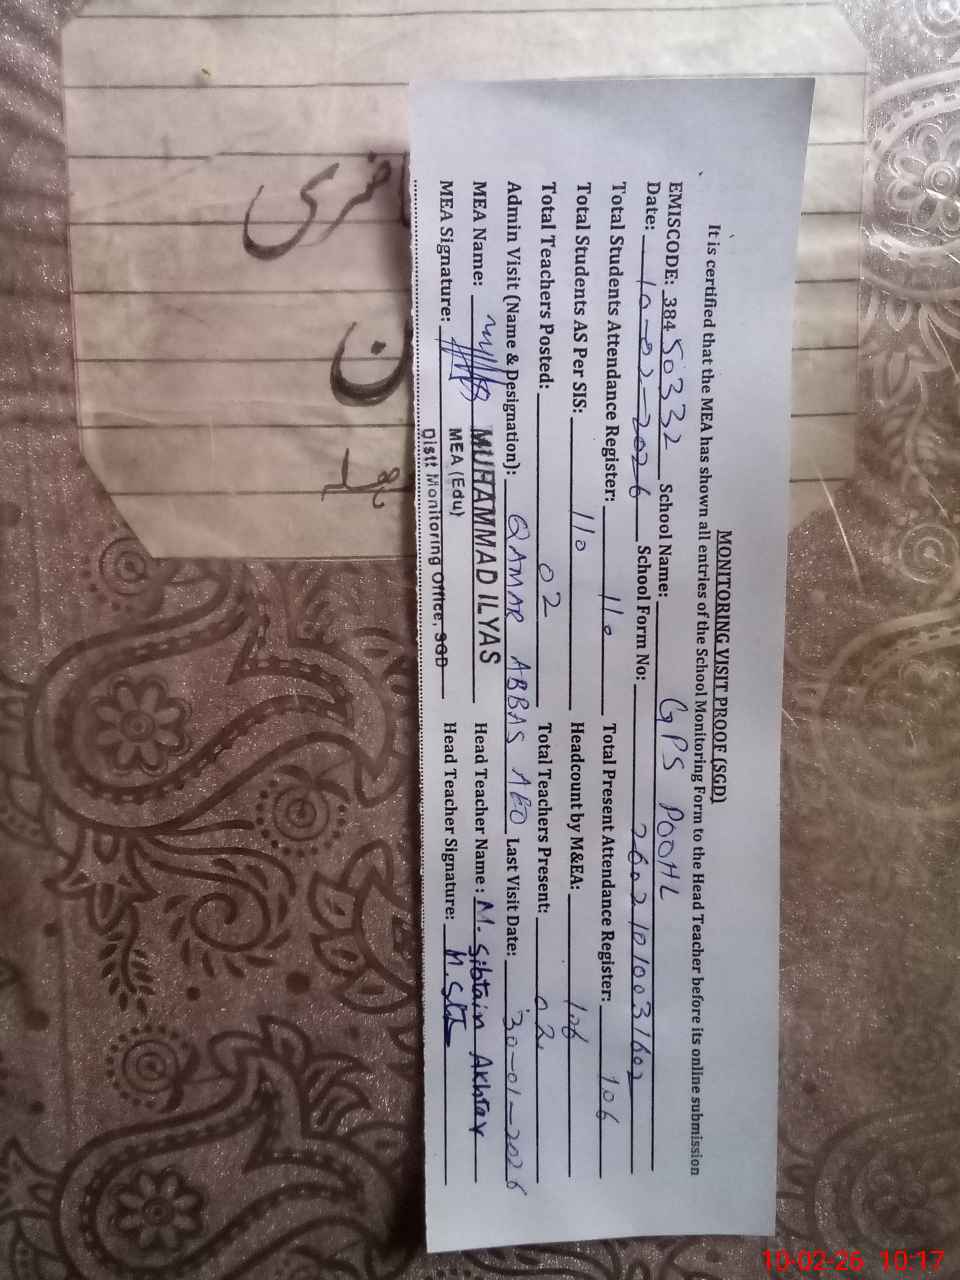 MONITORING VISIT PROOF (SGD)
It is certified that the MEA has shown all entries of the School Monitoring Form to the Head Teacher before its online submission
EMISCODE: 38450332 School Name: GPS POOHL
Date: 10-02-2026 School Form No: 26021010031602
Total Students Attendance Register: 110 Total Present Attendance Register: 106
Total Students AS Per SIS: 110 Headcount by M&EA: 106
Total Teachers Posted: 02 Total Teachers Present: 02
Admin Visit (Name & Designation): QAMAR ABBAS AEO Last Visit Date: 30-01-2026
MEA Name: MUHAMMAD ILYAS Head Teacher Name : M. Sibtain Akhtar
MEA Signature: MEA (Edu) Head Teacher Signature:
Distt Monitoring Office, SGD
10-02-26 10:17